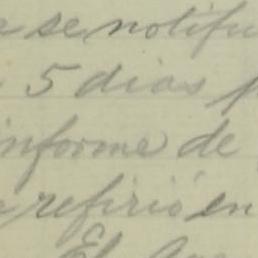 se notifi
5 dias
informe de
refirió en
El